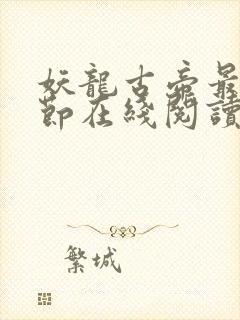 妖龍古帝最
節在綫閱讀
繁城